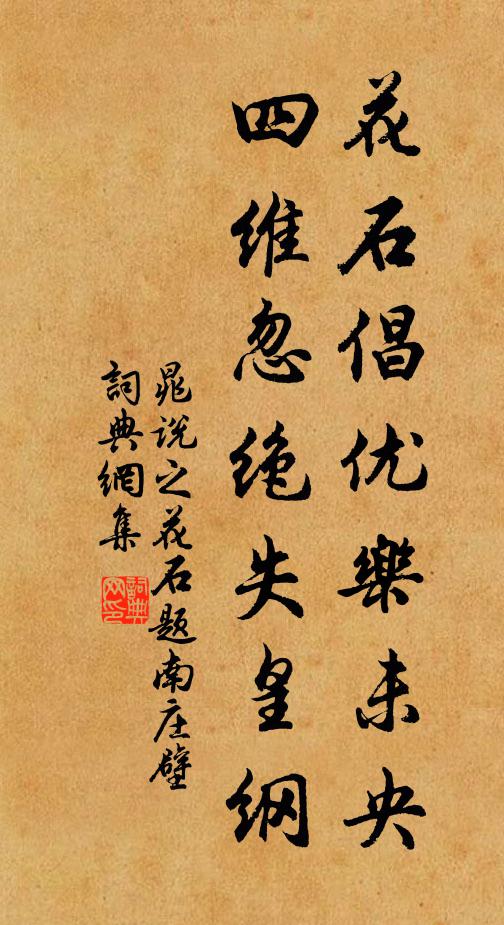 花石倡优樂未央
四维忽绝失皇纲
晁说之花石题南庄壁
詞典網集
詞典網印